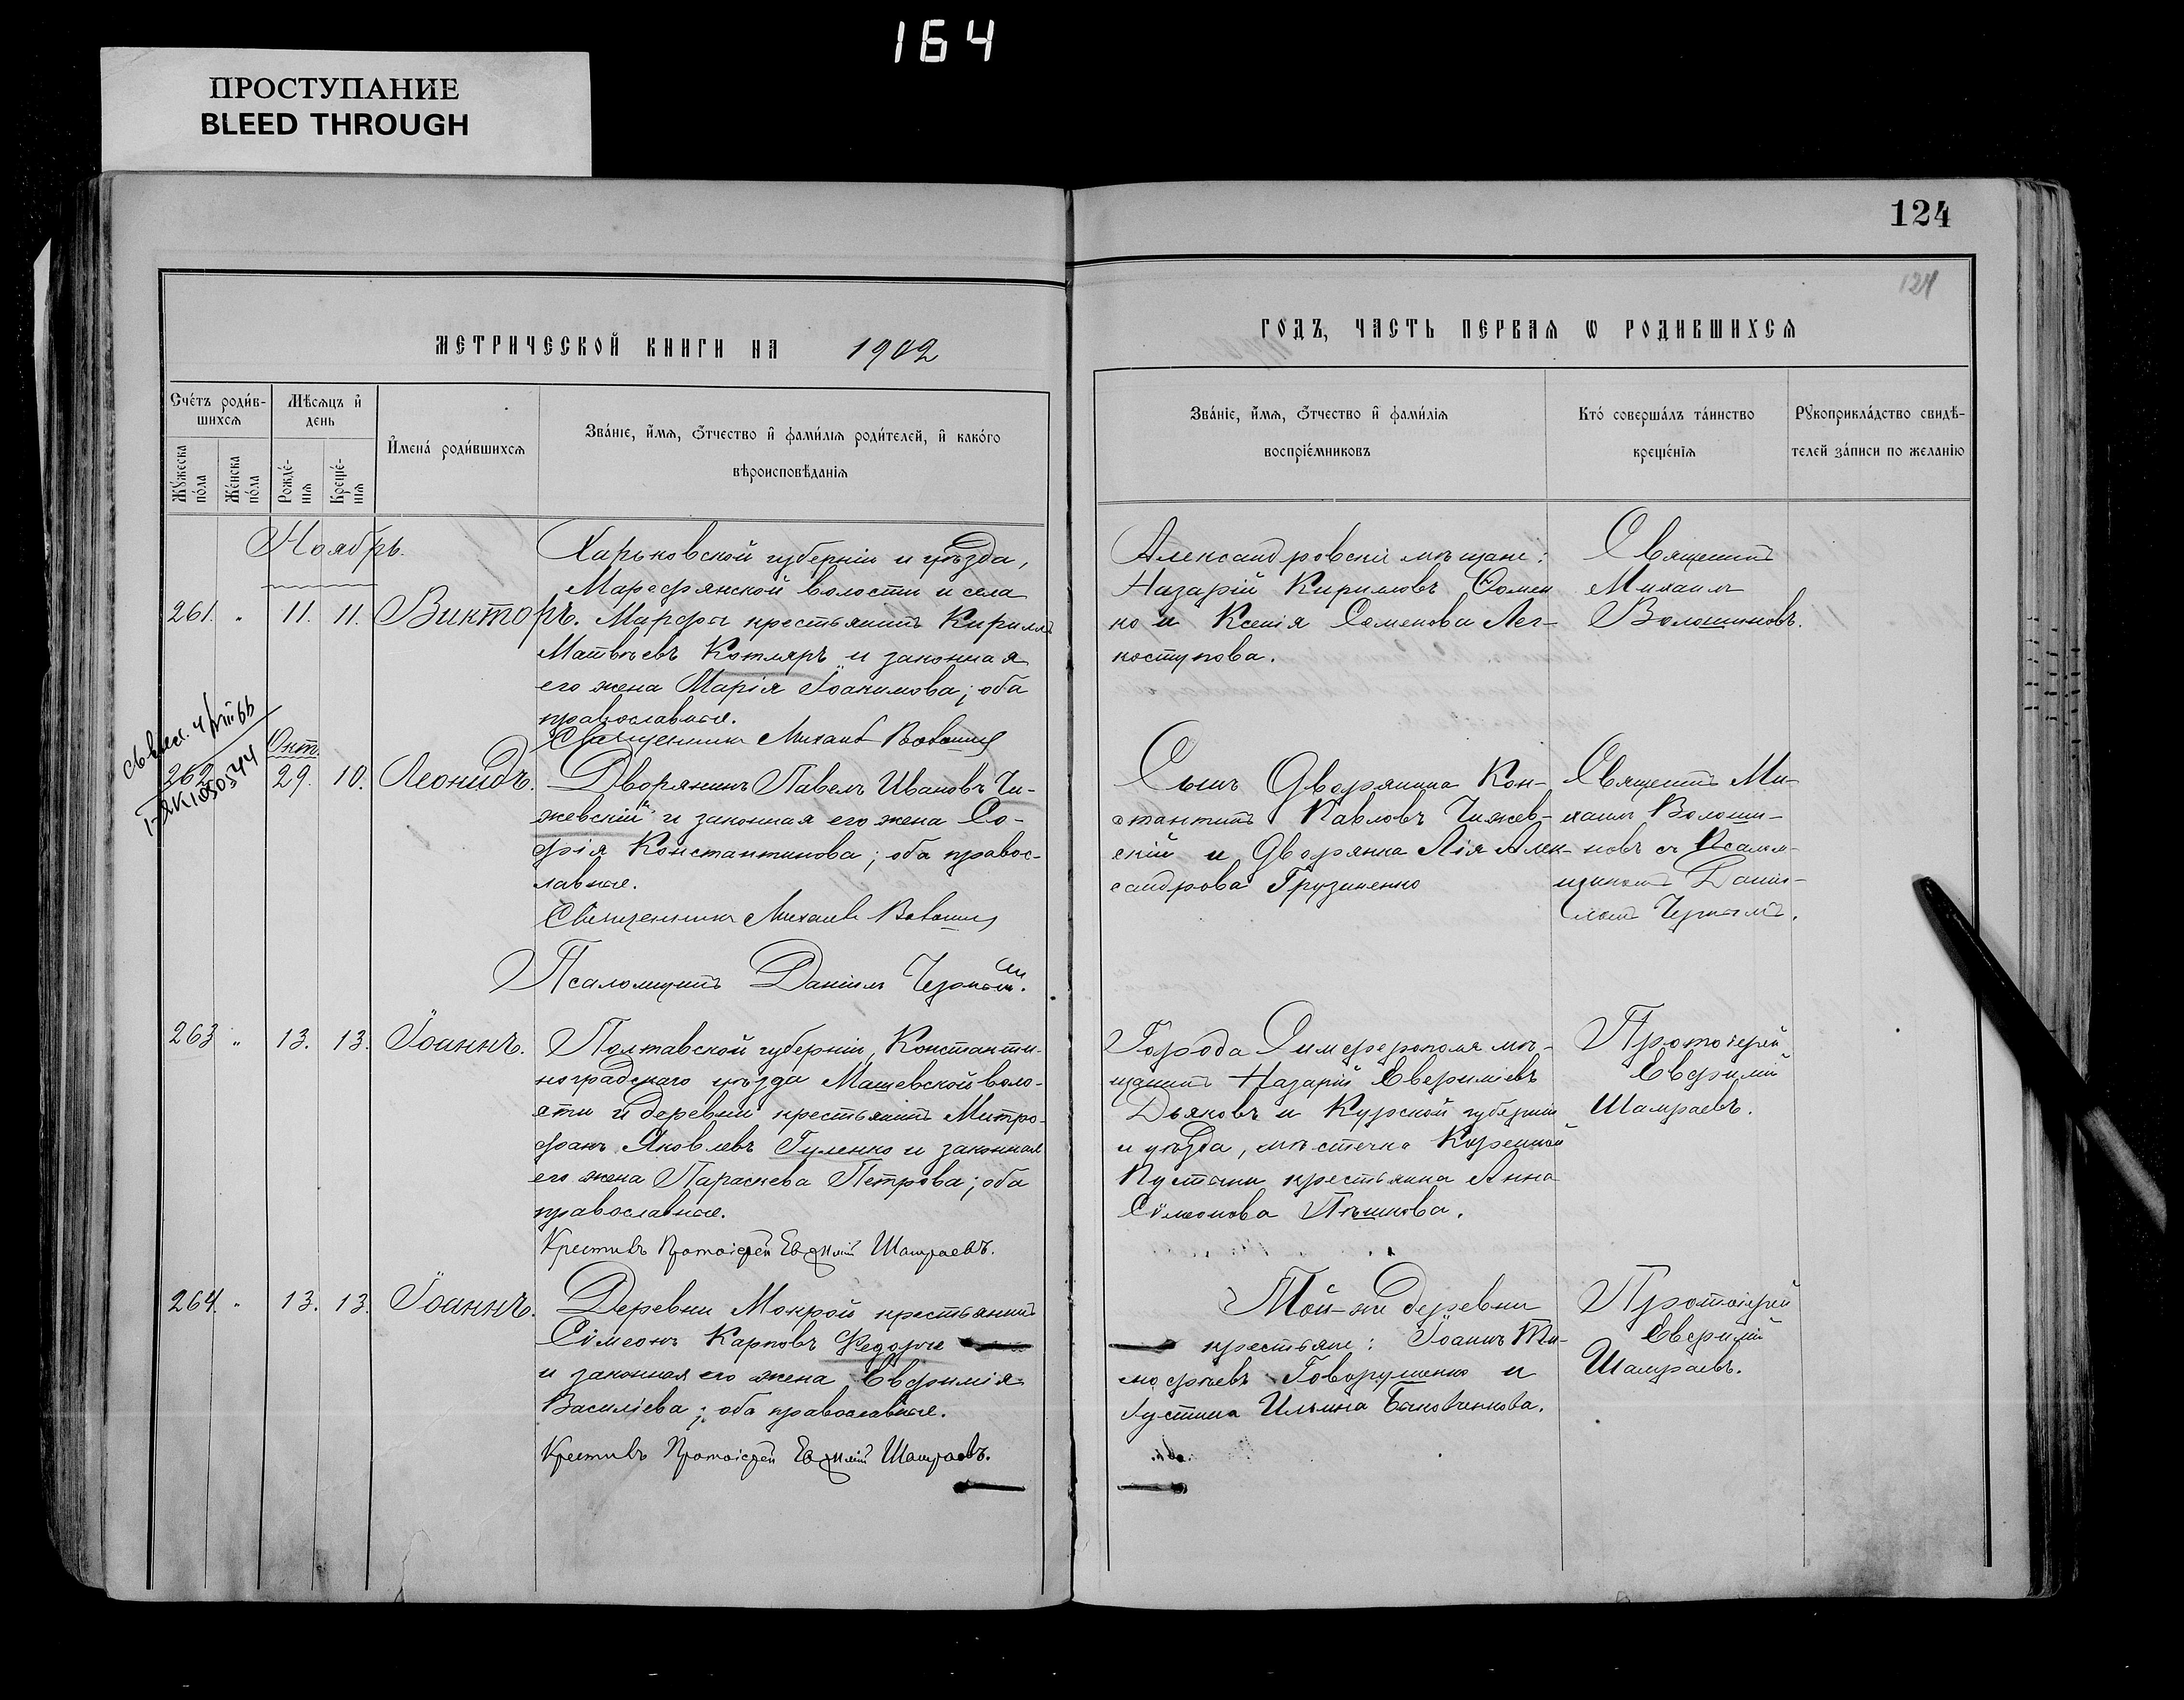 164
ПРОСТУПАНИЕ
BLEED THROUGH
124
124
МЕТРИЧЕСКОЙ КНИГИ НА 1902
ГОДЪ, ЧАСТЬ ПЕРВАЯ Ѡ РОДИВШИХСЯ
Счéтъ роди́в-
шихся
Мѣсяцъ и҆
день
Мꙋ́жеска
по́ла
Же́нска
по́ла
Рожде́-
нїѧ
Креще́-
нїѧ
И҆мена́ роди́вшихсѧ
Зва́нїе, и҆́мѧ, ѻ҆́тчество и҆ фами́лїѧ роди́телей, и҆ како́гѡ
вѣроисповѣ́данїѧ
Зва́нїе, и҆́мѧ, ѻ҆́тчество и҆ фами́лїѧ
воспрїе́мникѡвъ
Кто̀ соверша́лъ та́инство
креще́нїѧ
Рꙋкоприкла́дство свидѣ́-
телей за́писи по жела́нїю
Ноябрь.
261. " 11. 11. Викторъ.
Харьковской губерніи и уѣзда,
Марефянской волости и села
Марефы крестьянинъ Кириллъ
Матвѣевъ Котляръ и законная
его жена Марія Іоакимова; оба
православные.
Священникъ Михаилъ
Александровскіе мѣщане:
Назарій Кириловъ Фомен
ко и Ксенія Семенова Лег-
коступова.
Священникъ
Михаилъ
Волошиновъ.
Окт.
262 29. 10. Леонидъ.
Дворянинъ Павелъ Ивановъ Чи-
жевскій и законная его жена Со-
фія Константинова; оба правос-
лавные.
Священникъ Михаилъ
Псаломщикъ Даніилъ
Сынъ Дворянина Кон-
стантинъ Павловъ Чижев-
скій и Дворянка Лія Алек-
сандрова Грузиненко
Священникъ Ми-
хаилъ Волоши-
новъ съ Псалом-
щикомъ Даніи-
ломъ Чернымъ.
263 " 13. 13. Іоаннъ.
Полтавской губерніи, Константи-
ноградскаго уѣзда Машевской воло-
сти и деревни крестьянинъ Митро-
фанъ Яковлевъ Гуленко и законная
его жена Параскева Петрова; оба
православные.
Крестилъ Протоіерей Евфимій Шамраевъ.
Города Симферополя мѣ-
щанинъ Назарій Евфиміевъ
Дьяковъ и Курской губерніи
и уѣзда, мѣстечка Коренной
Пустыни крестьянка Анна
Сімеонова Пѣшкова.
Протоіерей
Евфимій
Шамраевъ.
264. " 13. 13. Іоаннъ.
Деревни Мокрой крестьянинъ
Сімеонъ Карповъ
и законная его жена Евфимія
Василіева; оба православные.
Крестилъ Протоіерей Евфимій Шамраевъ.
Той-же деревни
крестьяне: Іоаннъ Ти-
мофѣевъ Говорушенко и
Іустина Ильина
Протоіерей
Евфимій
Шамраевъ.